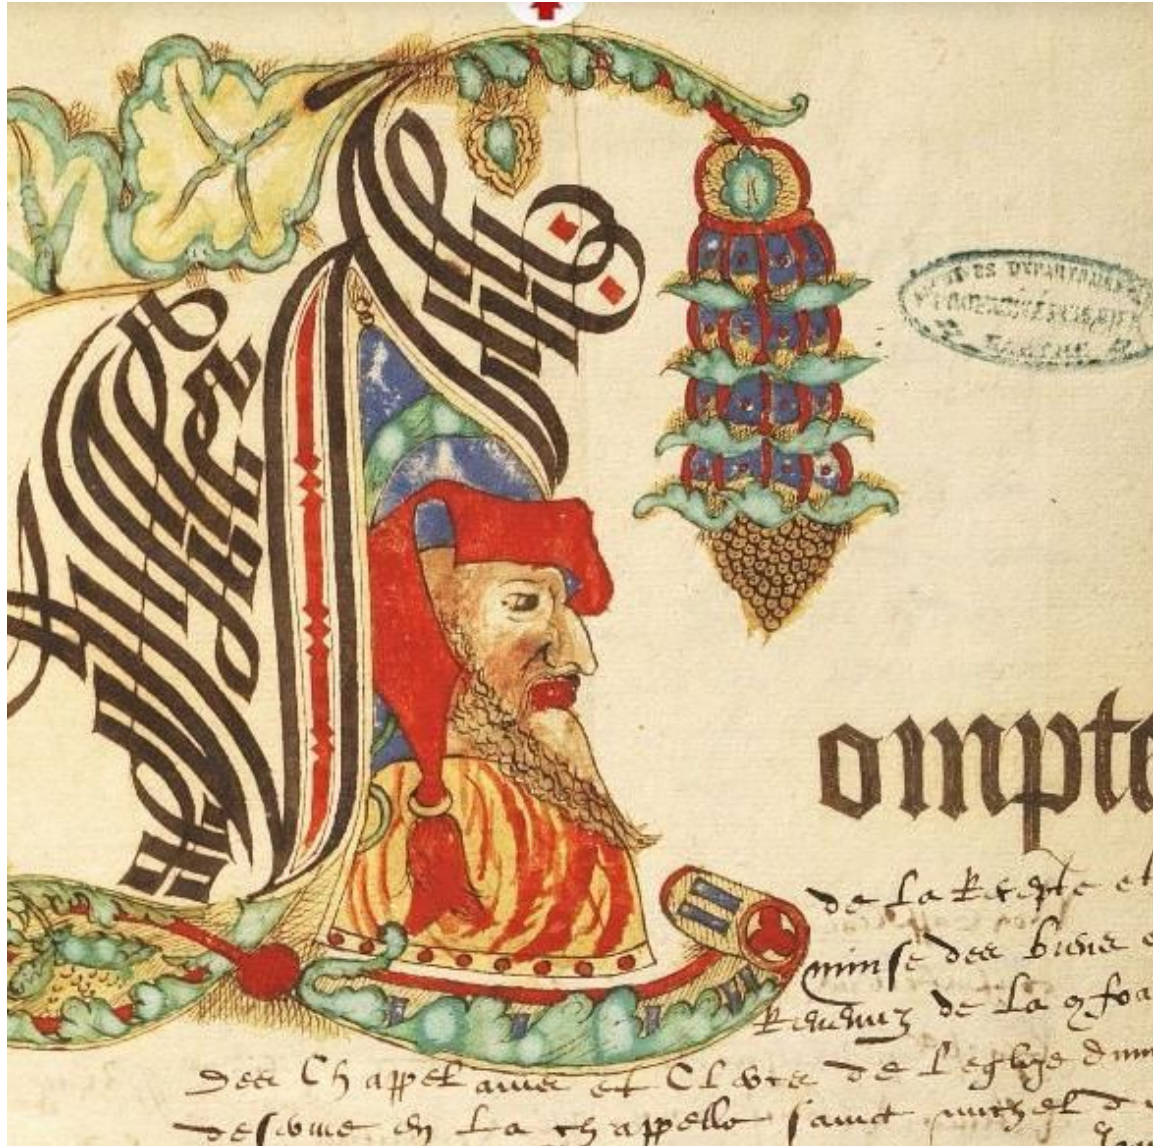 ompte
de la Recepte et
minse des biens e
Revenuz de la 9foa
des Chappelains et Clercs de l'eglize dum
desovne en la chappelle sainct michel d